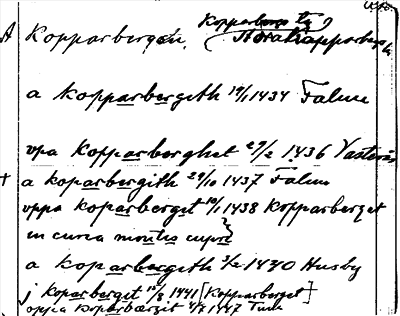 Kopparbergen,
a Kopparbergith 19/1 1434 Falun
vpa Kopparberghet 29/2 1436 Västerås
† a koparbergith 29/10 1437 Falun
vppa koparberget 10/1 1438 Kopparberget
in curia montis cupri
a koparbergith 3/2 1430 Husby
j Koparberget 15/8 1441 [Kopparberget]
oppa Koparbærgit 4/7 1447 Tuna